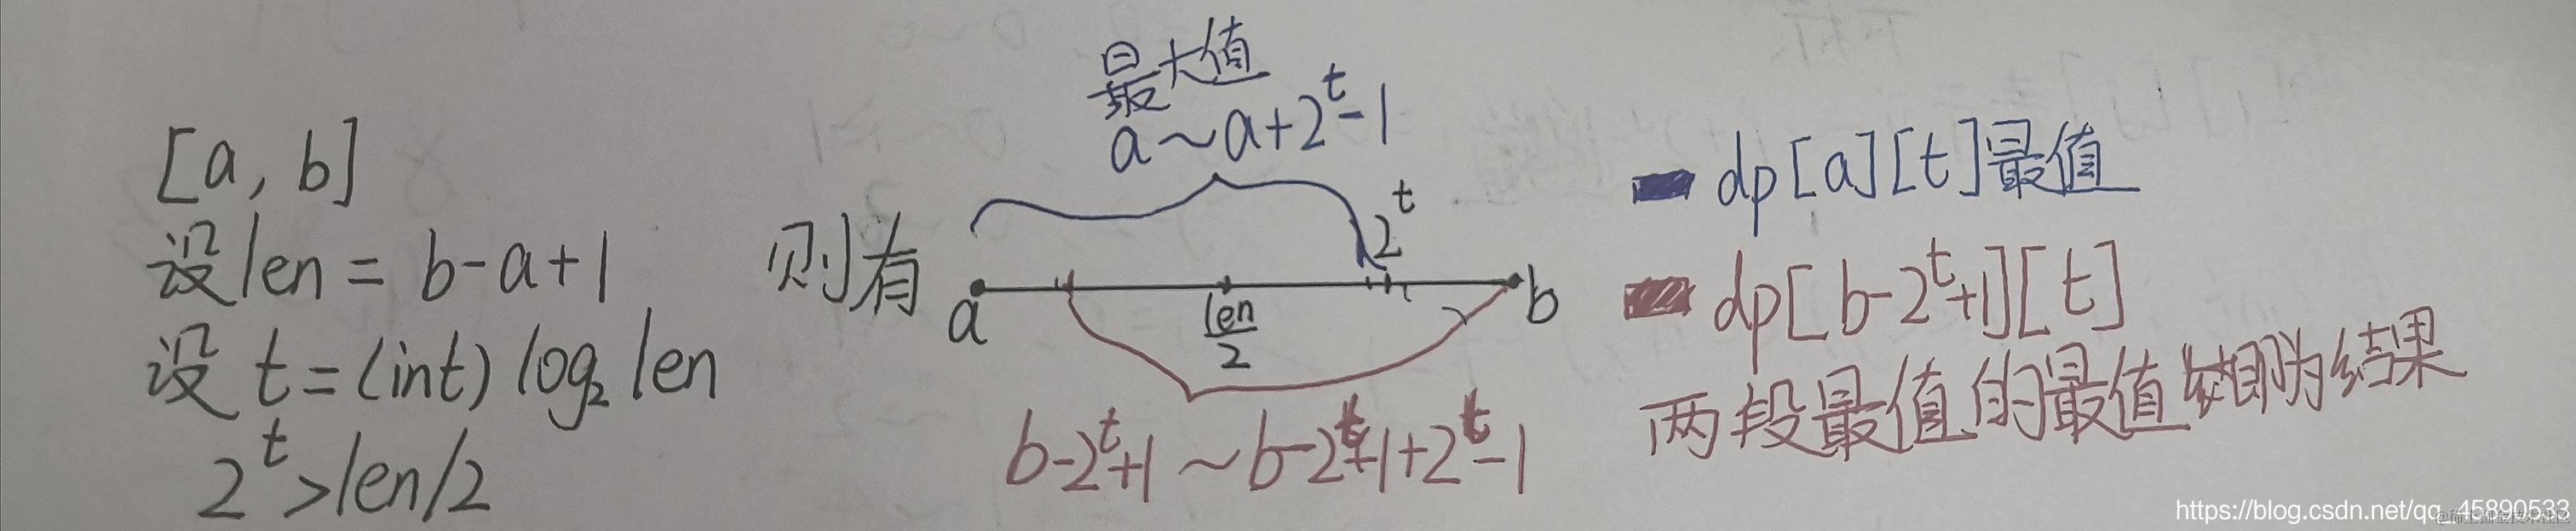 [a, b]
设len = b-a+1
设 t = (int) log₂ len
2^t > len/2
则有
最大值
a ~ a+2^t-1
2^t
a
len/2
b
b-2^t+1 ~ b-2^t+1+2^t-1
dp[a][t]最值
dp[b-2^t+1][t]
两段最值的最值即为结果
https://blog.csdn.net/qq_45890533